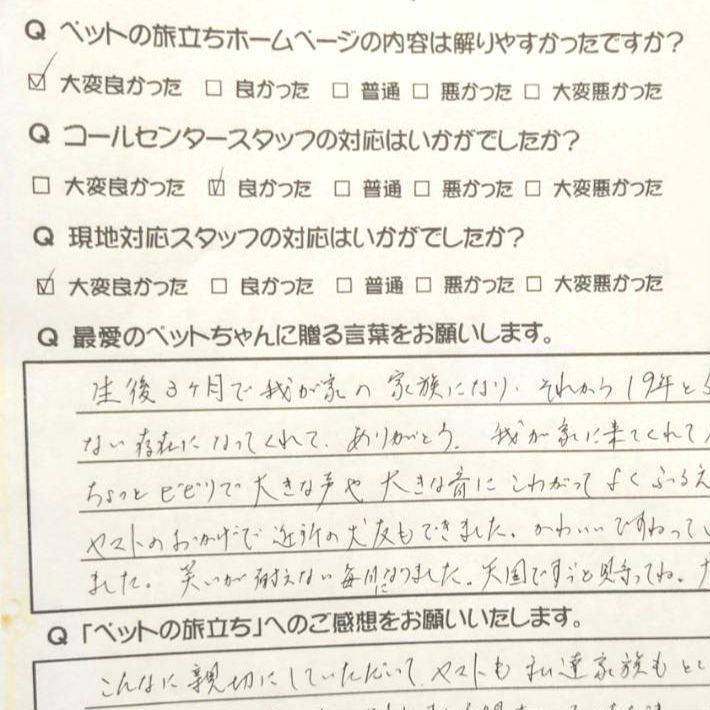 Q ペットの旅立ちホームページの内容は解りやすかったですか？
☑ 大変良かった □ 良かった □ 普通 □ 悪かった □ 大変悪かった
Q コールセンタースタッフの対応はいかがでしたか？
□ 大変良かった ☑ 良かった □ 普通 □ 悪かった □ 大変悪かった
Q 現地対応スタッフの対応はいかがでしたか？
☑ 大変良かった □ 良かった □ 普通 □ 悪かった □ 大変悪かった
Q 最愛のペットちゃんに贈る言葉をお願いします。
生後3ヶ月で我が家の家族になり、それから19年と5
ない存在になってくれて、ありがとう。我が家に来てくれて
ちょっとビビりで大きな声や大きな音にこわがってよくふるえ
ヤストのおかげで近所の犬友もできました。かわいいですねってい
ました。笑いが耐えない毎日になりました。天国でずっと見守ってね。
Q 「ペットの旅立ち」へのご感想をお願いいたします。
こんなに親切にしていただいて、ヤストも私達家族もとて